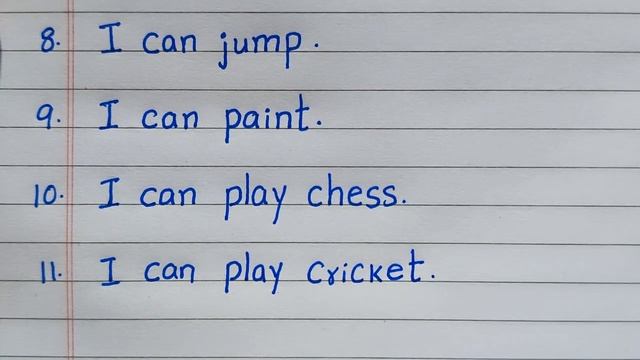 8. I can jump.
9. I can paint.
10. I can play chess.
11. I can play cricket.